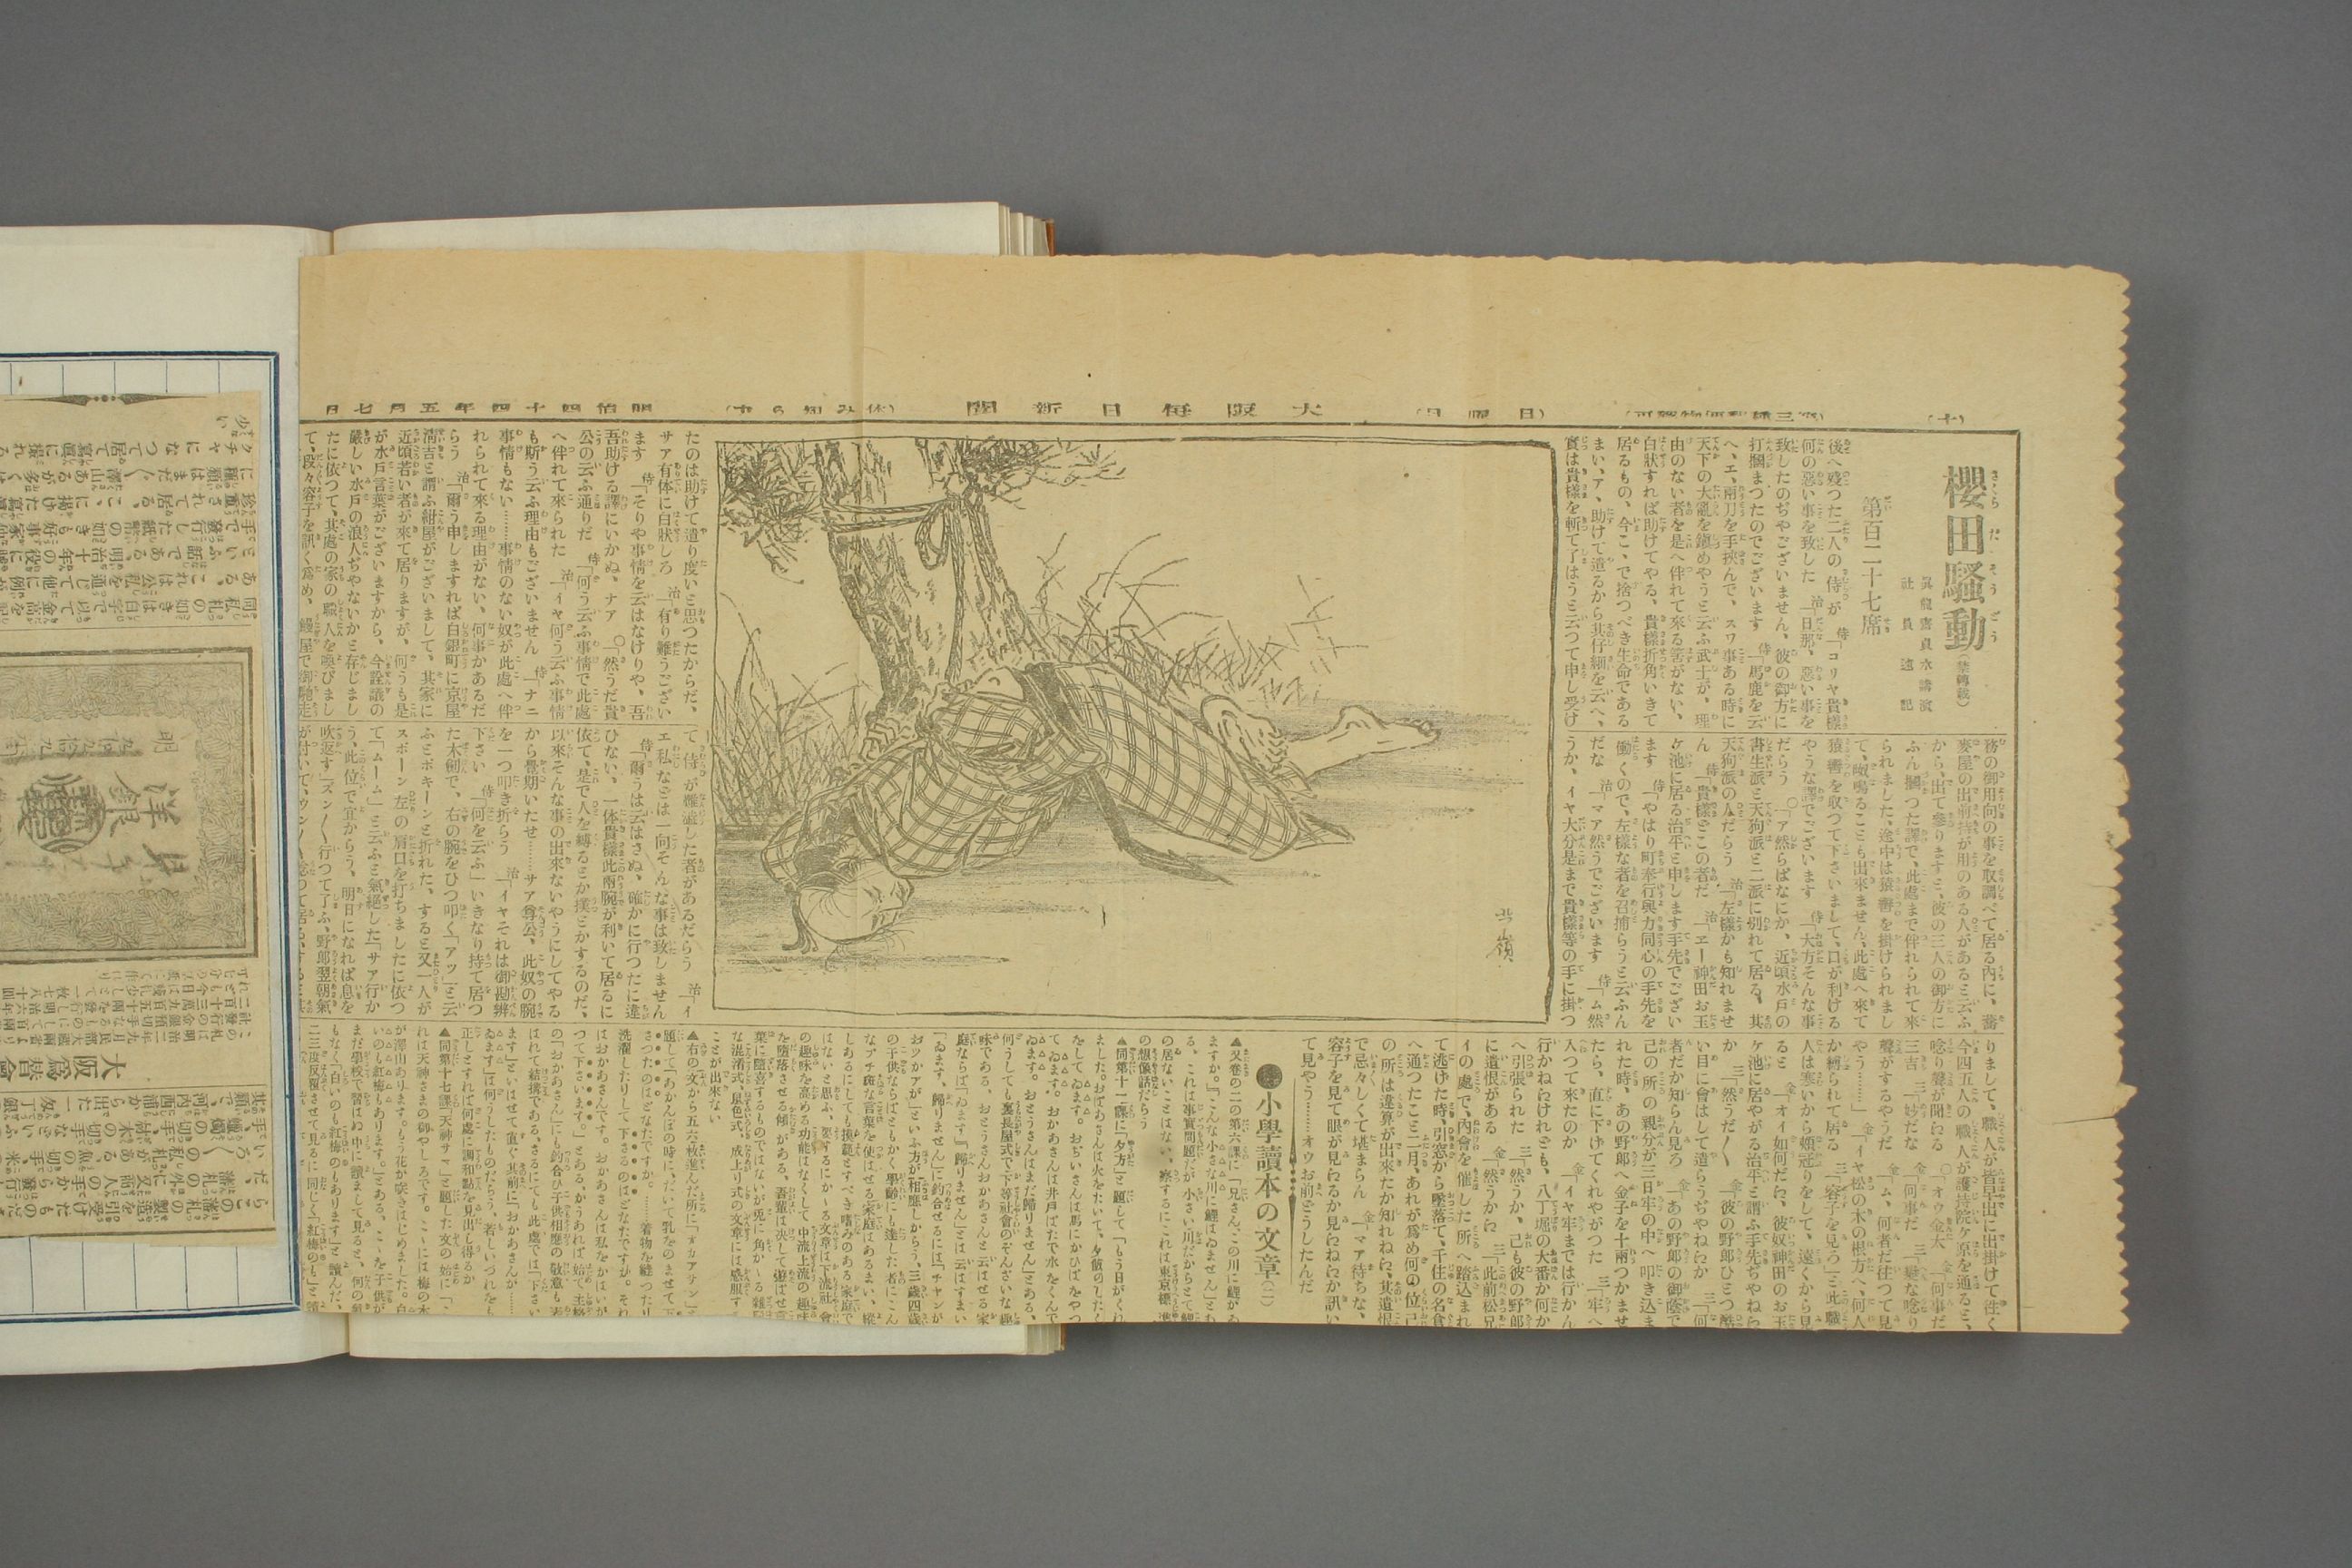 (十)
(第三種郵便物認可)
(日曜日)
大阪毎日新聞
明治四十四年五月七日
櫻田騷動(禁轉載)
眞龍齋貞水講演
社員速記
第百二十七席
後へ殘つた二人の侍が 侍「コリヤ貴樣
何の惡い事を致した 治「旦那、惡い事を
致したのぢやございません、彼の御方に
打摑まつたのでございます 侍「馬鹿を云
へ、エ、兩刀を手挾んで、スワ事ある時に
天下の大亂を鎭めやうと云ふ武士が、理
由のない者を是へ伴れて來る筈がない、
白狀すれば助けてやる、貴樣折角いきて
居るもの、今こゝで捨つべき生命である
まい、ア、助けて遣るから其仔細を云へ、
實は貴樣を斬て了はうと云つて申し受け
北嶺
たのは助けて遣り度いと思つたからだ、
サア有体に白狀しろ 治「有り難うござい
ます 侍「そりや事情を云はなけりや、吾
吾助ける譯にいかぬ、ナア ○「然うだ貴
公の云ふ通りだ 侍「何う云ふ事情で此處
へ伴れて來られた 治「イヤ何う云ふ事情
も斯う云ふ理由もございません 侍「ナニ
事情もない……事情のない奴が此處へ伴
れられて來る理由がない、何事かあるだ
らう 治「爾う申しますれば白銀町に京屋
淸吉と謂ふ紺屋がございまして、其家に
近頃若い者が來て居りますが、何うも是
が水戸言葉がございますから、今詮議の
嚴しい水戸の浪人ぢやないかと存じまし
たに依つて、其處の家の職人を喚びまし
て、段々容子を訊く爲め、鰻屋で御馳走
務の御用向の事を取調べて居る内に、蕎
麥屋の出前持が用のある人があると云ふ
から、出て參りますと、彼の三人の御方に
ふん摑つた譯で、此處まで伴れられて來
られました、途中は猿轡を掛けられまし
て、呶鳴ることも出來ません、此處へ來て
猿轡を取つて下さいまして、口が利ける
やうな譯でございます 侍「大方そんな事
だらう ○「ア然らばなにか、近頃水戸の
書生派と天狗派と二派に別れて居る、其
天狗派の人だらう 治「左樣かも知れませ
ん 侍「貴樣どこの者だ 治「エー神田お玉
ヶ池に居る治平と申します手先でござい
ます 侍「やはり町奉行與力同心の手先を
働くので、左樣な者を召捕らうと云ふん
だな 治「マア然うでございます 侍「ム然
うか、イヤ大分是まで貴樣等の手に掛つ
て侍が難澁した者があるだらう 治「イ
エ私などは一向そんな事は致しません
侍「爾うは云はさぬ、確かに行つたに違
ひない、一体貴樣此兩腕が利いて居るに
依て、是で人を縛るとか撲とかするのだ、
以來そんな事の出來ないやうにしてやる
から覺期いたせ……サア尊公、此奴の腕
を一つ叩き折らう 治「イヤそれは御勘辨
下さい 侍「何を云ふ」いきなり持て居つ
た木劍で、右の腕をひつ叩く「アッ」と云
ふとポキーンと折れた、すると又一人が
スポーン左の肩口を打ちましたに依つ
て「ムーム」と云ふと氣絶した「サア行か
う、此位で宜からう、明日になれば息を
吹返す」ズン〱行つて了ふ、野郎翌朝氣
が付いて、ウン〱
りまして、職人が皆早出に出掛けて往く
今四五人の職人が護持院ヶ原を通ると、
唸り聲が聞える ○「オウ金太 金「何事だ
三吉 三「妙だな 金「何事だ 三「變な唸り
聲がするやうだ 金「ム、何者だ往つて見
やう……」金「イヤ松の木の根方へ、何人
か縛られて居る 三「容子を見ろ」と此職
人は寒いから頰冠りをして、遠くから見
ると 金「オイ如何だえ、彼奴神田のお玉
ヶ池に居やがる治平と謂ふ手先ぢやねえ
か 三「然うだ〱 金「彼の野郎ひどつ酷
い目に會はして遣らうぢやねえか 三「何
者だか知らん見ろ 金「あの野郎の御蔭で
己の所の親分が三日牢の中へ叩き込ま
れた時、あの野郎へ金子を十兩つかませ
たら、直に下げてくれやがつた 三「牢へ
入つて來たのか 金「イヤ牢までは行かん
行かねえけれども、八丁堀の大番か何か
へ引張られた 三「然うか、己も彼の野郎
に遺恨がある 金「然うかえ 三「此前松兄
イの處で、内會を催した所へ踏込まれ
て逃げた時、引窓から墜落て、千住の名倉
へ通つたこと二月、あれが爲め何の位己
の所は違算が出來たか知れねえ、其遺恨
で忌々しくて堪まらん 金「マア待ちな、
容子を見て眼が見えるか見えねえか訊い
て見やう……オウお前どうしたんだ
小學讀本の文章(二)
▲又卷の二の第六課に「兄さん、この川に鯉がゐ
ますか。「こんな小さな川に鯉はゐません」とあ
る、これは事實問題だが小さい川だからとて鯉
の居ないことはない、察するにこれは東京標準
の想像話だらう
▲同第十一課に「夕方」と題して、「もう日がくれ
ました。おばあさんは火をたいて、夕飯のしたく
をして、ゐます。おぢいさんは馬にかひばをやつ
て、ゐます。おかあさんは井戸ばたで水をくんで
ゐます。おとうさんはまだ歸りません」とある、
何うしても裏長屋式で下等社會のぞんざいな趣
味である、おとうさんおかあさんと云はせる家
庭ならば「ゐます」「歸りません」とは云はすまい
「ゐます、歸りません」に釣合せるには「チャンが
おツかアが」といふ方が相應しからう、三歳四歳
の子供ならばともかく學齡にも達した者にこん
なアチ斑な言葉を使はせる家庭はあるまい、縱
しあるにしても摸範とすべき嗜みのある家庭で
はないと思ふ、要するにかゝる文章は下流社會
の趣味を高める功能はなくして中流上流の趣味
を墮落させる傾がある、吾輩は決して遊ばせ言
葉に隨喜するものではないが兎に角かゝる雜駁
な混淆式、黑色式、成上り式の文章には感服する
ことが出來ない
▲右の文から五六枚進んだ所に「オカアサン」と
題して「あかんぼの時に、だいて乳をのませて下
さつたのはどなたですか。……着物を縫つたり
洗濯したりして下さるのはどなたですか。それ
はおかあさんです。おかあさんは私をかはいが
つて下さいます。」とある、かうあれば始て主格
の「おかあさん」にも釣合ひ子供相應の敬意も表
はれて結構である、さるにても此處では「下さい
ます」といはせて直ぐ其前に「おかあさんが……
ゐます」は何うしたものだらう、若しいづれをも
正しとすれば何處に調和點を見出し得るか
▲同第十七課「天神サマ」と題した文の始に「こ
れは天神さまの御やしろです。こゝには梅の木
が澤山あります。もう花が咲きはじめました。白
いのも紅梅もあります。」とある、こゝを子供が
まだ學校で習はぬ中に讀まして見ると、何の氣
もなく「白いのも紅梅のもあります」と讀んだ、
二三度反覆させて見るに同じく「紅梅のも」と讀
少い
クチャになつて居て寫眞に撮れる
大阪爲替會